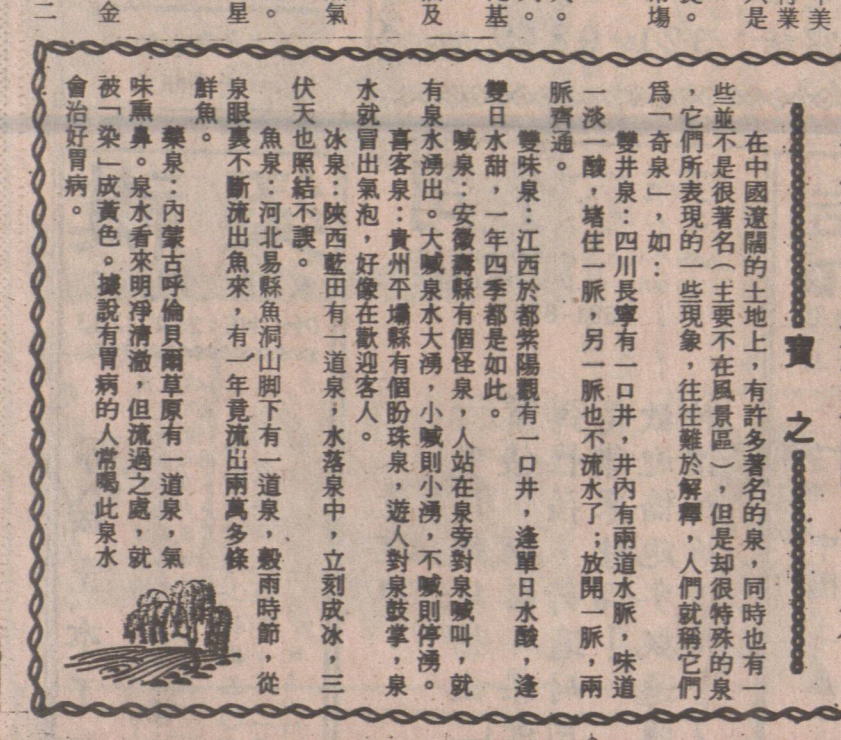 寶之
在中國遼闊的土地上，有許多著名的泉，同時也有一
些並不是很著名（主要不在風景區），但是却很特殊的泉
，它們所表現的一些現象，往往難於解釋，人們就稱它們
爲「奇泉」，如：
雙井泉：四川長寧有一口井，井內有兩道水脈，味道
一淡一酸，堵住一脈，另一脈也不流水了；放開一脈，兩
脈齊通。
雙味泉：江西於都紫陽觀有一口井，逢單日水酸，逢
雙日水甜，一年四季都是如此。
喊泉：安徽壽縣有個怪泉，人站在泉旁對泉喊叫，就
有泉水湧出。大喊泉水大湧，小喊則小湧，不喊則停湧。
喜客泉：貴州平壩縣有個盼珠泉，遊人對泉鼓掌，泉
水就冒出氣泡，好像在歡迎客人。
冰泉：陝西藍田有一道泉，水落泉中，立刻成冰，三
伏天也照結不誤。
魚泉：河北易縣魚洞山脚下有一道泉，穀雨時節，從
泉眼裏不斷流出魚來，有一年竟流出兩萬多條
鮮魚。
藥泉：內蒙古呼倫貝爾草原有一道泉，氣
味熏鼻。泉水看來明淨清澈，但流過之處，就
被「染」成黃色。據說有胃病的人常喝此泉水
會治好胃病。